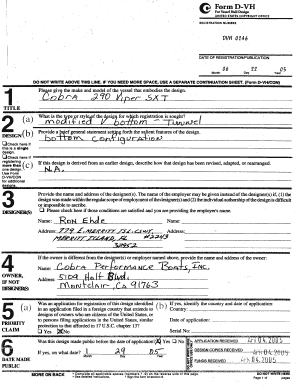 Form D-VH
For Vessel Hull Design
UNITED STATES COPYRIGHT OFFICE
REGISTRATION NUMBER
DVH 0146
DATE OF REGISTRATION/PUBLICATION
06 22 05
Month Day Year
DO NOT WRITE ABOVE THIS LINE. IF YOU NEED MORE SPACE, USE A SEPARATE CONTINUATION SHEET. (Form D-VH/CON)
1
TITLE
Please give the make and model of the vessel that embodies the design.
Cobra 290 Viper SXT
2
DESIGN
(a) What is the type or style of the design for which registration is sought?
modified V bottom - Tunnel
(b) Provide a brief general statement setting forth the salient features of the design.
bottom configuration
Check here if this is a single design.
Check here if registering more than one design. Use Form D-VH/CON for additional designs.
(c) If this design is derived from an earlier design, describe how that design has been revised, adapted, or rearranged.
N.A.
3
DESIGNER(S)
Provide the name and address of the designer(s). The name of the employer may be given instead of the designer(s) if, (1) the design was made within the regular scope of employment of the designer(s) and (2) the individual authorship of the design is difficult or impossible to ascribe.
Please check here if those conditions are satisfied and you are providing the employer's name.
Name: Ron Ehde Name:
Address: 779 E. Merritt Isl. Cswy. Address:
Merritt Island, FL #2243
32952
4
OWNER, IF NOT DESIGNER
If the owner is different from the designer(s) or employer named above, provide the name and address of the owner.
Name: Cobra Performance Boats, Inc.
Address: 5109 Holt Blvd.
Montclair, CA 91763
5
PRIORITY CLAIM
(a) Was an application for registration of this design identified in an application filed in a foreign country that extends to designs of owners who are citizens of the United States, or to persons filing applications in the United States, similar protection to that afforded in 17 U.S.C. chapter 13?
Yes No
(b) If yes, identify the country and date of application:
Country:
Date of application:
Serial No:
6
DATE MADE PUBLIC
Was the design made public before the date of application? Yes No
If yes, on what date? 1 29 05
Month Day Year
APPLICATION RECEIVED
DESIGN COPIES RECEIVED
FUNDS RECEIVED
MORE ON BACK
DO NOT WRITE HERE